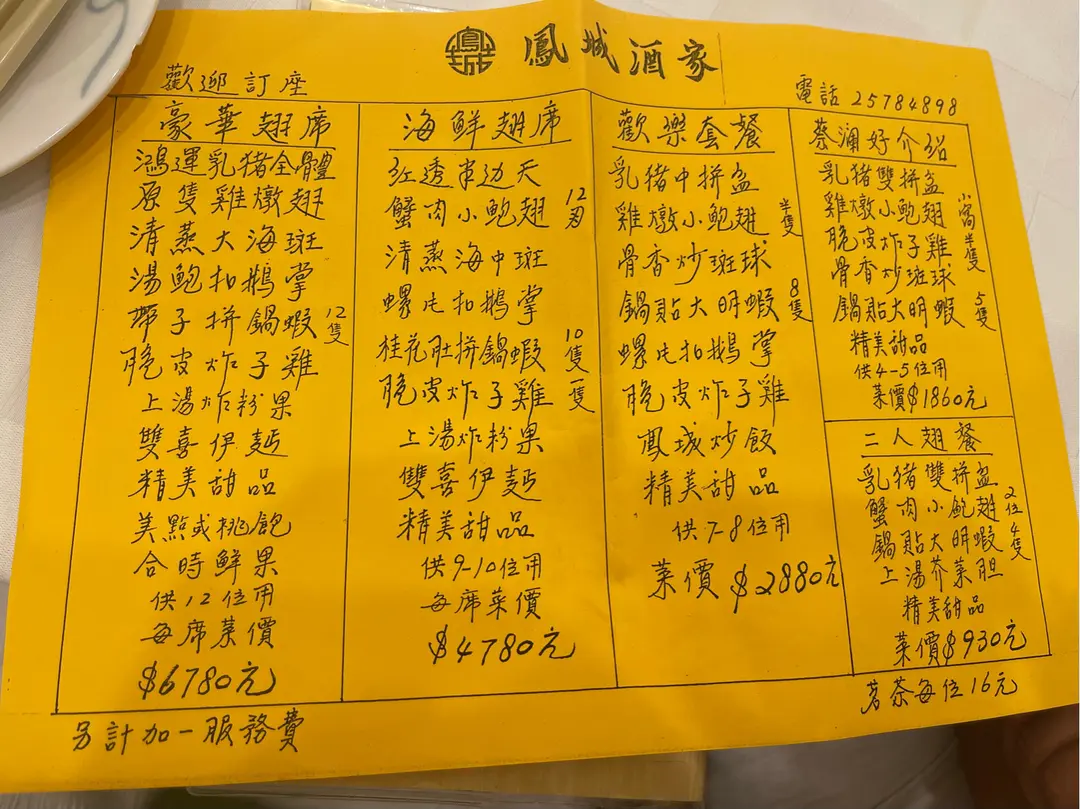 鳳城酒家
歡迎訂座
電話 25784898
豪華翅席
鴻運乳猪全體
原隻雞燉翅
清蒸大海斑
湯鮑扣鵝掌
帶子拼鍋蝦 12隻
脆皮炸子雞
上湯炸粉果
雙喜伊麵
精美甜品
美點或桃飽
合時鮮果
供12位用
每席菜價
$6780元
海鮮翅席
红透半边天
蟹肉小鮑翅 12為
清蒸海中斑
螺片扣鵝掌
桂花肚拼鍋蝦 10隻
脆皮炸子雞 一隻
上湯炸粉果
雙喜伊麵
精美甜品
供9-10位用
每席菜價
$4780元
歡樂套餐
乳猪中拼盆
雞燉小鮑翅 半隻
骨香炒斑球
鍋貼大明蝦 8隻
螺片扣鵝掌
脆皮炸子雞
鳳城炒飯
精美甜品
供7-8位用
菜價 $2880元
蔡瀾好介紹
乳猪雙拼盆
雞燉小鮑翅 小窩
脆皮炸子雞 半隻
骨香炒斑球
鍋貼大明蝦 5隻
精美甜品
供4-5位用
菜價$1860元
二人翅餐
乳猪雙拼盆
蟹肉小鮑翅 2位
鍋貼大明蝦 4隻
上湯芥菜胆
精美甜品
菜價$930元
茗茶每位16元
另計加一服務費